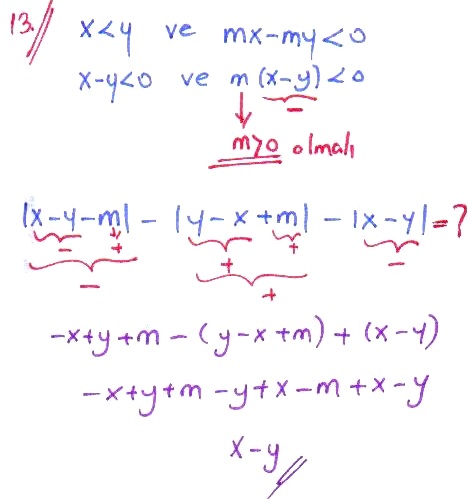 13. x<y ve mx-my<0
x-y<0 ve m(x-y)<0
-
m>0 olmalı
|x-y-m| - |y-x+m| - |x-y| = ?
- + + + -
- +
-x+y+m - (y-x+m) + (x-y)
-x+y+m-y+x-m+x-y
x-y